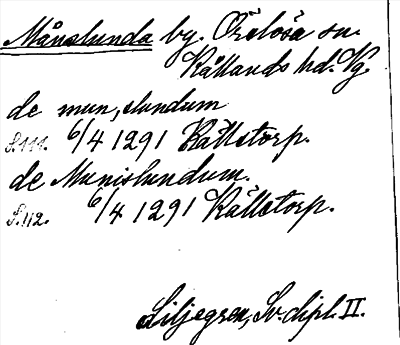 Månslunda by. Örslösa sn.
Kållands hd. Vg.
de mun,slundum
S.111. 6/4 1291 Källstorp.
de Munislundum.
S.112. 6/4 1291 Källstorp.
Liljegren, Sv. dipl. II.